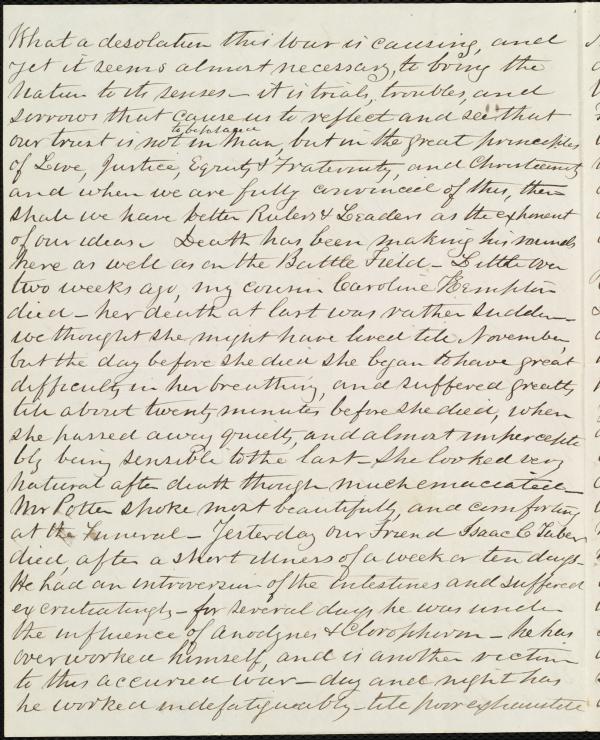 What a desolation this War is causing, and
yet it seems almost necessary, to bring the
Nation to its senses - it is trials, troubles, and
sorrows that cause us to reflect and see that
our trust is not to be placed in man, but in the great principles
of Love, Justice, Equity & Fraternity, and Christianity
and when we are fully convinced of this, then
shall we have better Rulers & Leaders as the exponent
of our ideas. Death has been making his rounds
here as well as on the Battle Field - Little over
two weeks ago, my cousin Caroline Hempton
died - her death at last was rather sudden -
we thought she might have lived till November,
but the day before she died she began to have great
difficulty in her breathing, and suffered greatly
till about twenty minutes before she died, when
she passed away quietly, and almost impercepti
bly being sensible to the last - She looked very
natural after death though much emaciated -
Mr Potter spoke most beautifully, and comforting
at the Funeral - Yesterday our Friend Isaac C Taber
died, after a short illness of a week or ten days -
He had an introversion of the intestines and suffered
excrutiatingly - for several days he was under
the influence of anodynes & Cloropherm - he has
over worked himself, and is another victim
to this accursed war - day and night has
he worked indefatigueably - till poor exhausted